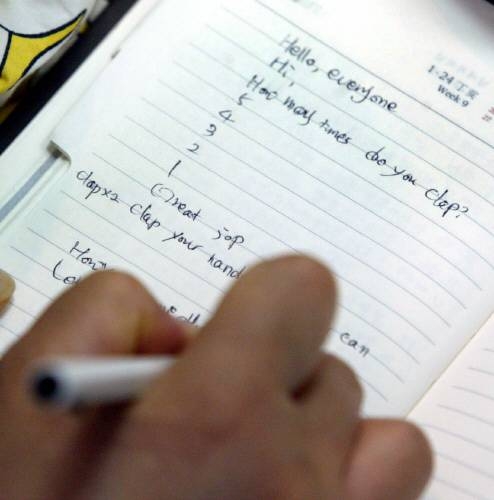 1-24 丁亥
Week 9
Hello, everyone
Hi,
How many times do you clap?
5
4
3
2
1
(G)reat job
clap×2 clap your hand
can